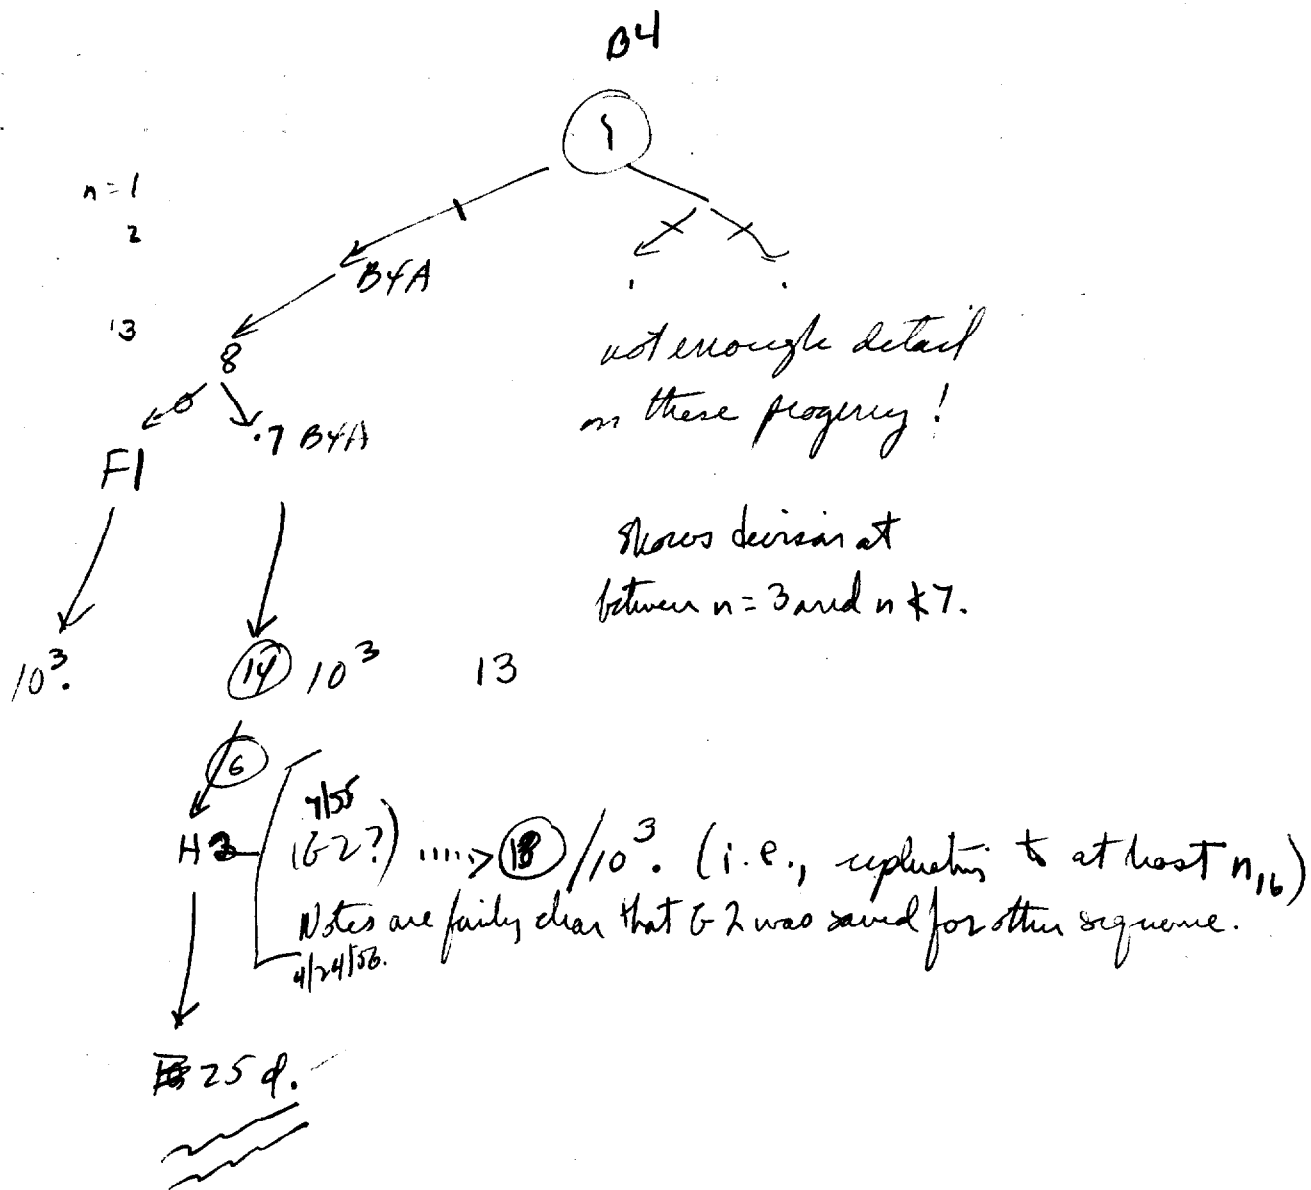 B4
1
n = 1
2
B4A
3
8
not enough detail
on these progeny!
.7 B4A
F1
Shows division at
between n = 3 and n ≮ 7.
10³.
14 10³ 13
6
7/55
H2 (G2?) ....> 18 /10³. (i.e., replicating to at least n₁₆)
Notes are fairly clear that G2 was saved for other sequence.
4/24/56.
25 d.